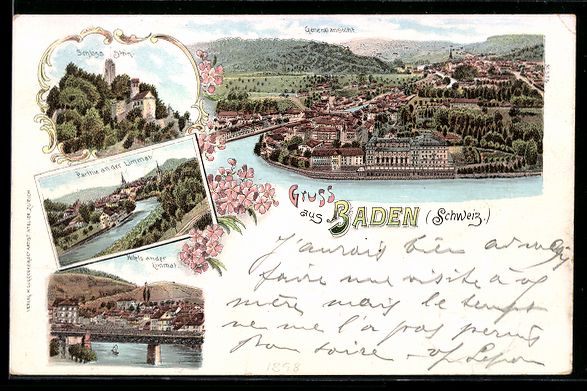 Generalansicht
Schloss Stein
Parthie an der Limmat.
Hôtels an der
Limmat.
Gruss
aus BADEN (Schweiz.)
J'aurais bien
faire une visite à
mère mais le temps
ne me l'a pas permis
Bon soire
1898